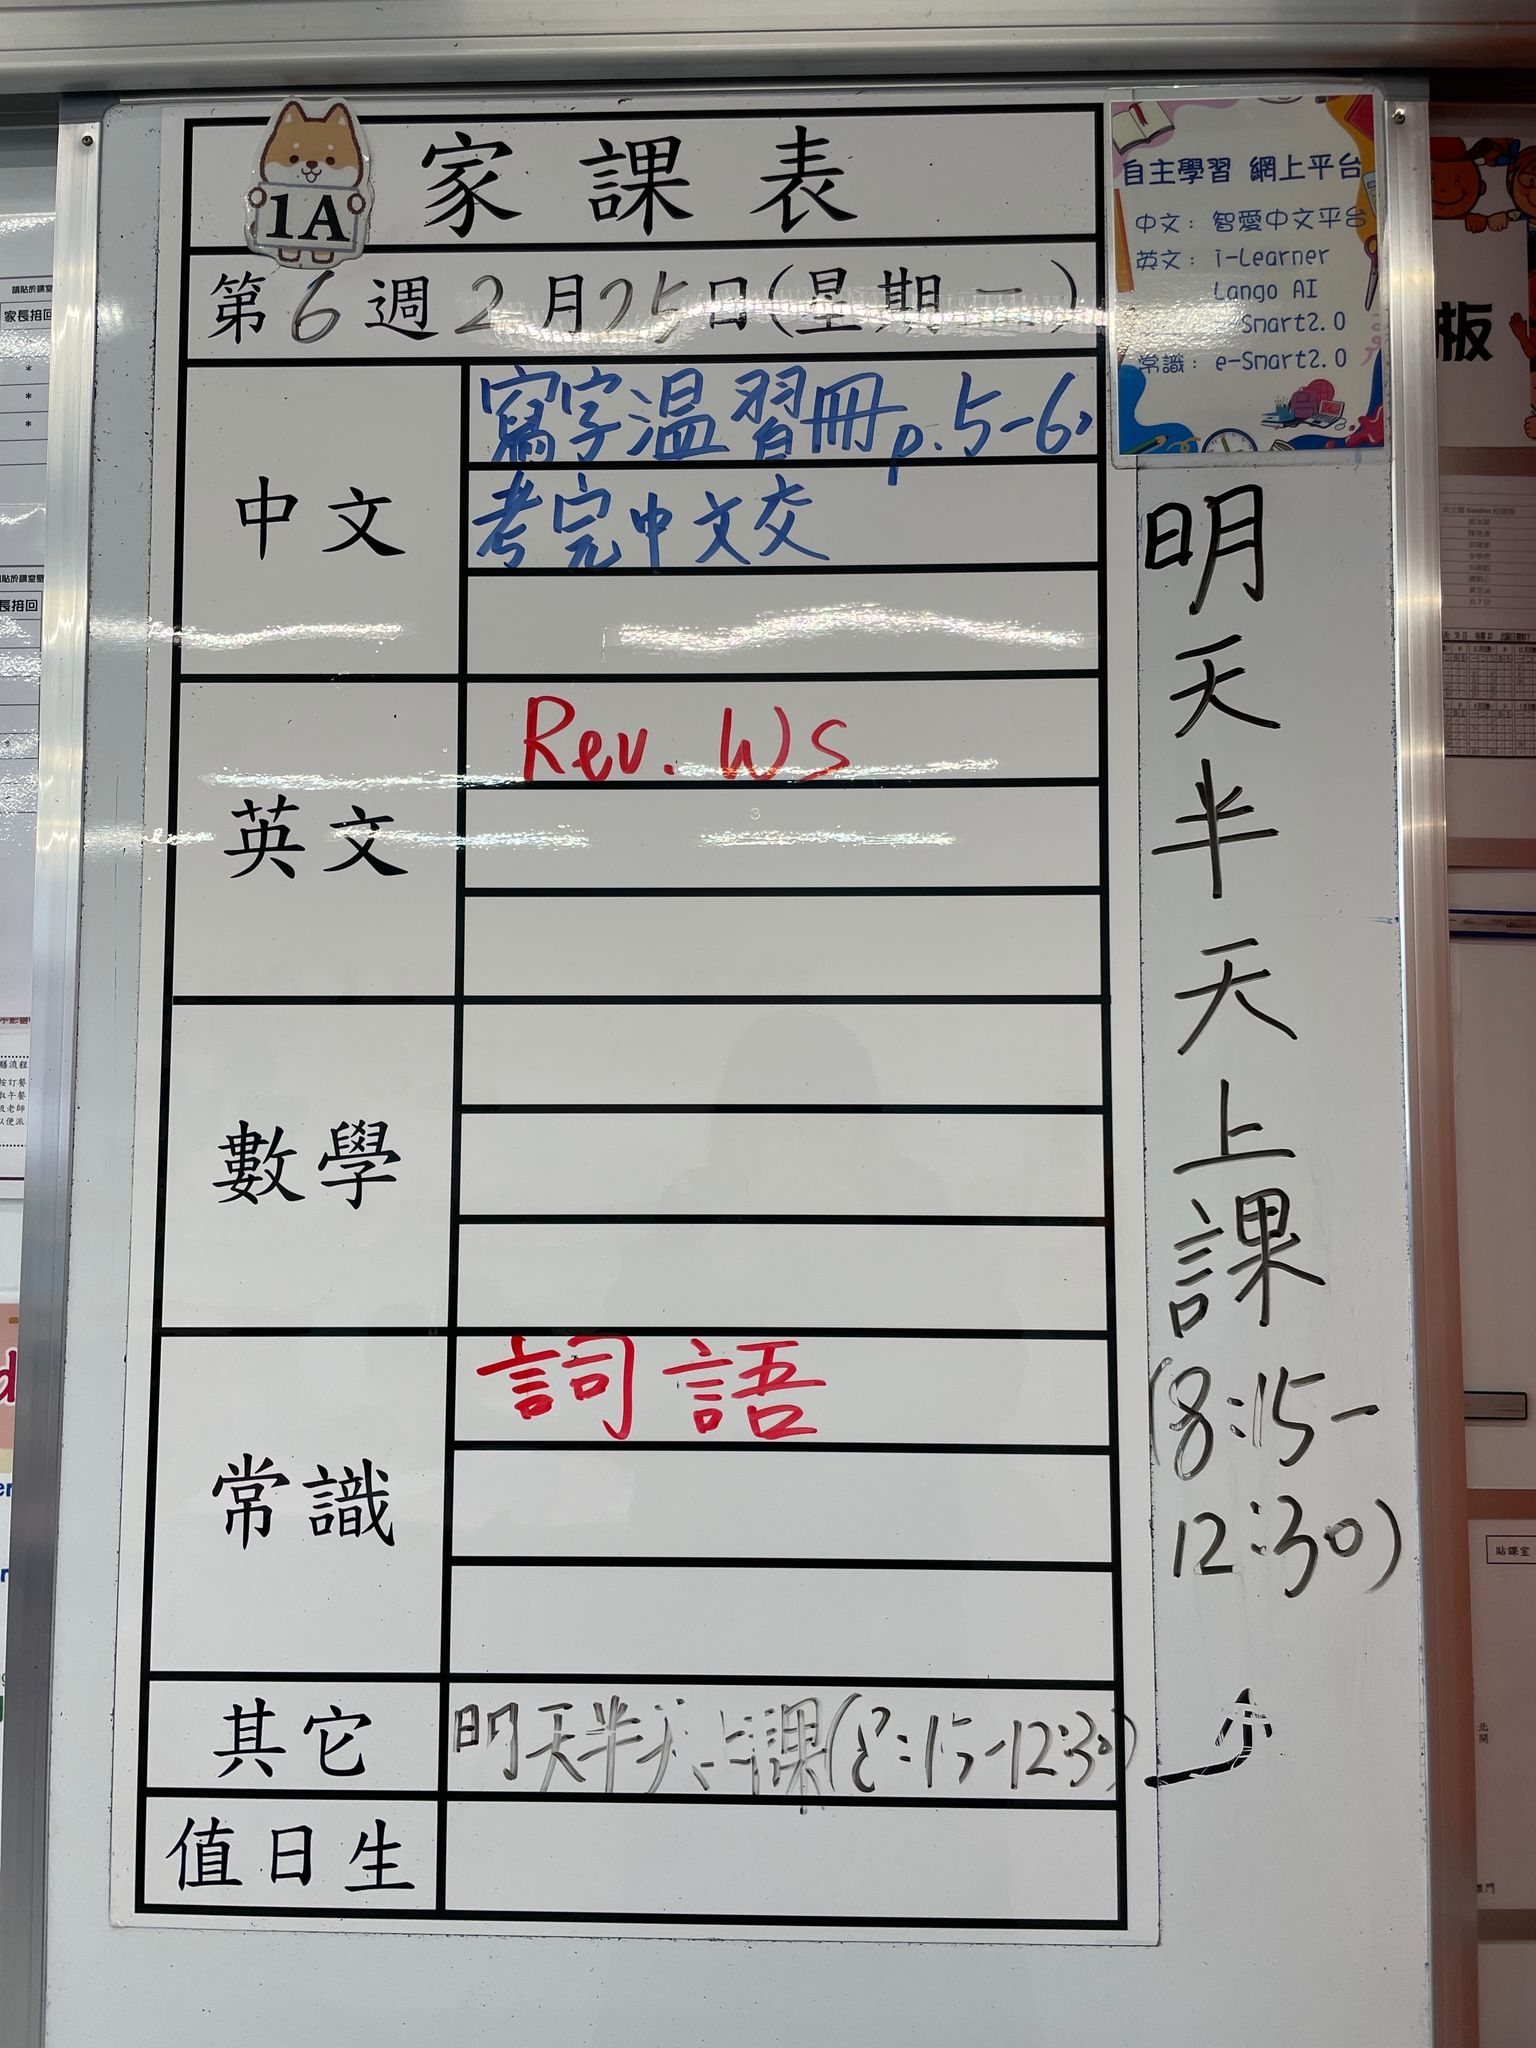 1A
家課表
第6週2月25日(星期二)
中文
寫字温習冊p.5-6,
考完中文交
英文
Rev. WS
數學
常識
詞語
其它
明天半天上課(8:15-12:30)
值日生
自主學習 網上平台
中文：智愛中文平台
英文：i-Learner
Lango AI
Smart2.0
常識：e-Smart2.0
明天半天上課
(8:15-
12:30)
家長掊回
板
貼課室